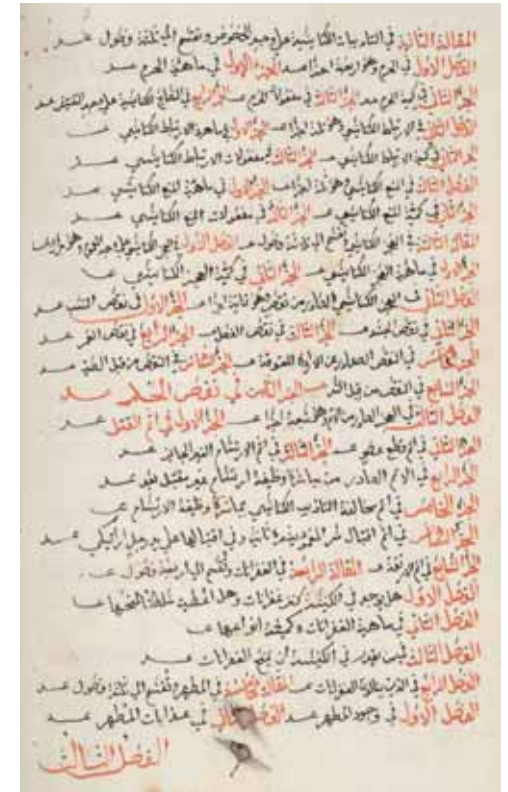 المقالة الثانية في التاديبات الكنايسية على وجه الخصوص وتقسم الي ثلثة فصول
الفصل الاول في الحرم وهو اربعة اجزا الجزء الاول في ماهية الحرم
الجزء الثاني في كمية الحرم الجزء الثالث في مفعولات الحرم الجزء الرابع في الكنايسية على وجه
الفصل الثاني في الارتباط الكنايسي وهو ثلثة اجزا الجزء الاول في ماهية الارتباط الكنايسي
الجزء الثاني في كمية الارتباط الكنايسي الجزء الثالث في مفعولات الارتباط الكنايسي
الفصل الثالث في المنع الكنايسي وهو ثلثة اجزا الجزء الاول في ماهية المنع الكنايسي
الجزء الثاني في كمية المنع الكنايسي الجزء الثالث في مفعولات المنع الكنايسي
المقالة الثالثة في العجز الكنايسي وتقسم الي ثلاثة فصول الفصل الاول في العجز الكنايسي على وجه العموم وهو جزان
الجزء الاول في ماهية العجز الكنايسي الجزء الثاني في كمية العجز الكنايسي
الفصل الثاني في العجز الكنايسي الصادر من نقص وهو ثمانية اجزا الجزء الاول في نقص النسب
الجزء الثاني في نقص الجسد الجزء الثالث في نقص العقل الجزء الرابع في نقص العمر
الجزء الخامس في النقص الصادر عن الارادة المعتوقة الجزء السادس في النقص من قبل الصيت
الجزء السابع في النقص من قبل السر الجزء الثامن في نقص الحلم
الفصل الثالث في العجز الصادر من الاثم وهو سبعة اجزا الجزء الاول في اثم القتل
الجزء الثاني في اثم قطع عضو الجزء الثالث في اثم الارتسام الغير الجايز
الجزء الرابع في الاثم الصادر من مباشرة وظيفة ارتسام غير مقتبل بعد
الجزء الخامس في اثم مخالفة التاديب الكنايسي بمباشرة وظيفة الارتسام
الجزء السادس في اثم اقتبال سر المعمودية ثانية وفي اقتبالها على يد رجل اراتيكي
الجزء السابع في اثم الارتقة المقالة الرابعة في الغفرانات وتقسم الي اربعة فصول
الفصل الاول هل يوجد في الكنيسة كنز غفرانات وهل اعطيت سلطة لتمنحها
الفصل الثاني في ماهية الغفرانات وكيفية انواعها
الفصل الثالث فيمن يقدر في الكنيسة ان يمنح الغفرانات
الفصل الرابع في الغفرانات المقالة الخامسة في المطهر وتقسم الي ثلثة فصول
الفصل الاول في وجود المطهر الفصل الثاني في عذابات المطهر
الفصل الثالث